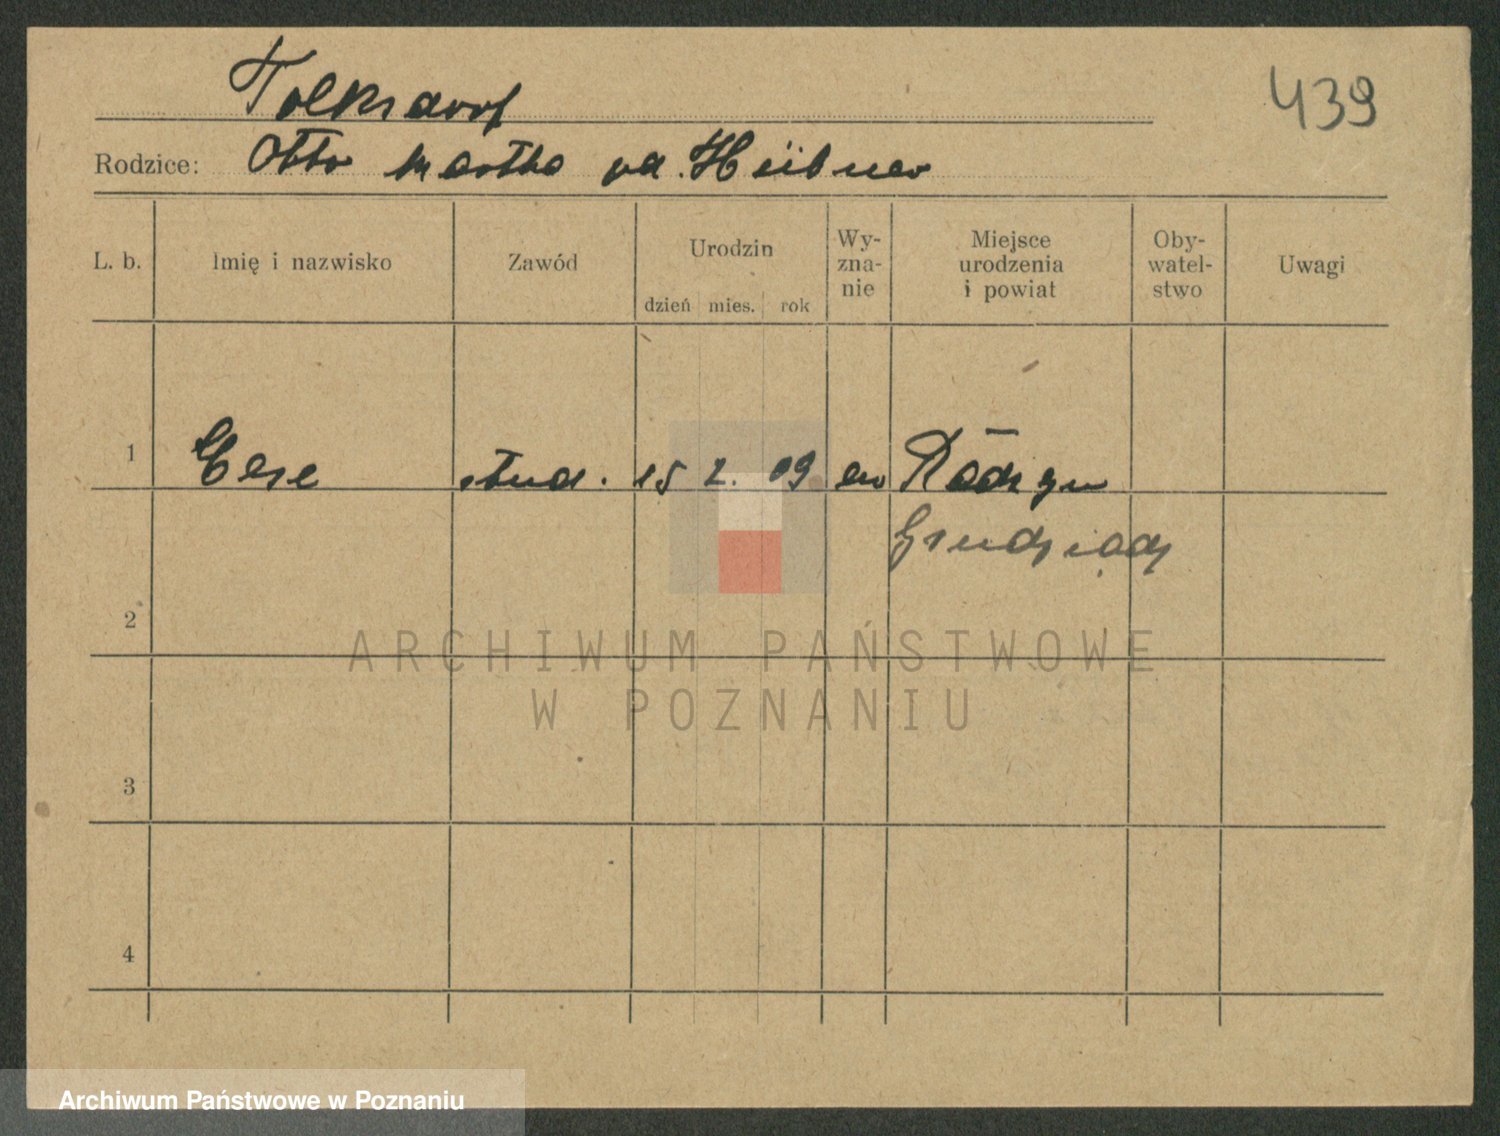 Tolksdorf
439
Rodzice: Otto Martha yd. Hübner
L. b. Imię i nazwisko Zawód Urodzin dzień mies. rok Wy-zna-nie Miejsce urodzenia i powiat Oby-watel-stwo Uwagi
1 stud. 15 2. 09 ew Radzyn
Grudziądz
2
ARCHIWUM PAŃSTWOWE
W POZNANIU
3
4
Archiwum Państwowe w Poznaniu